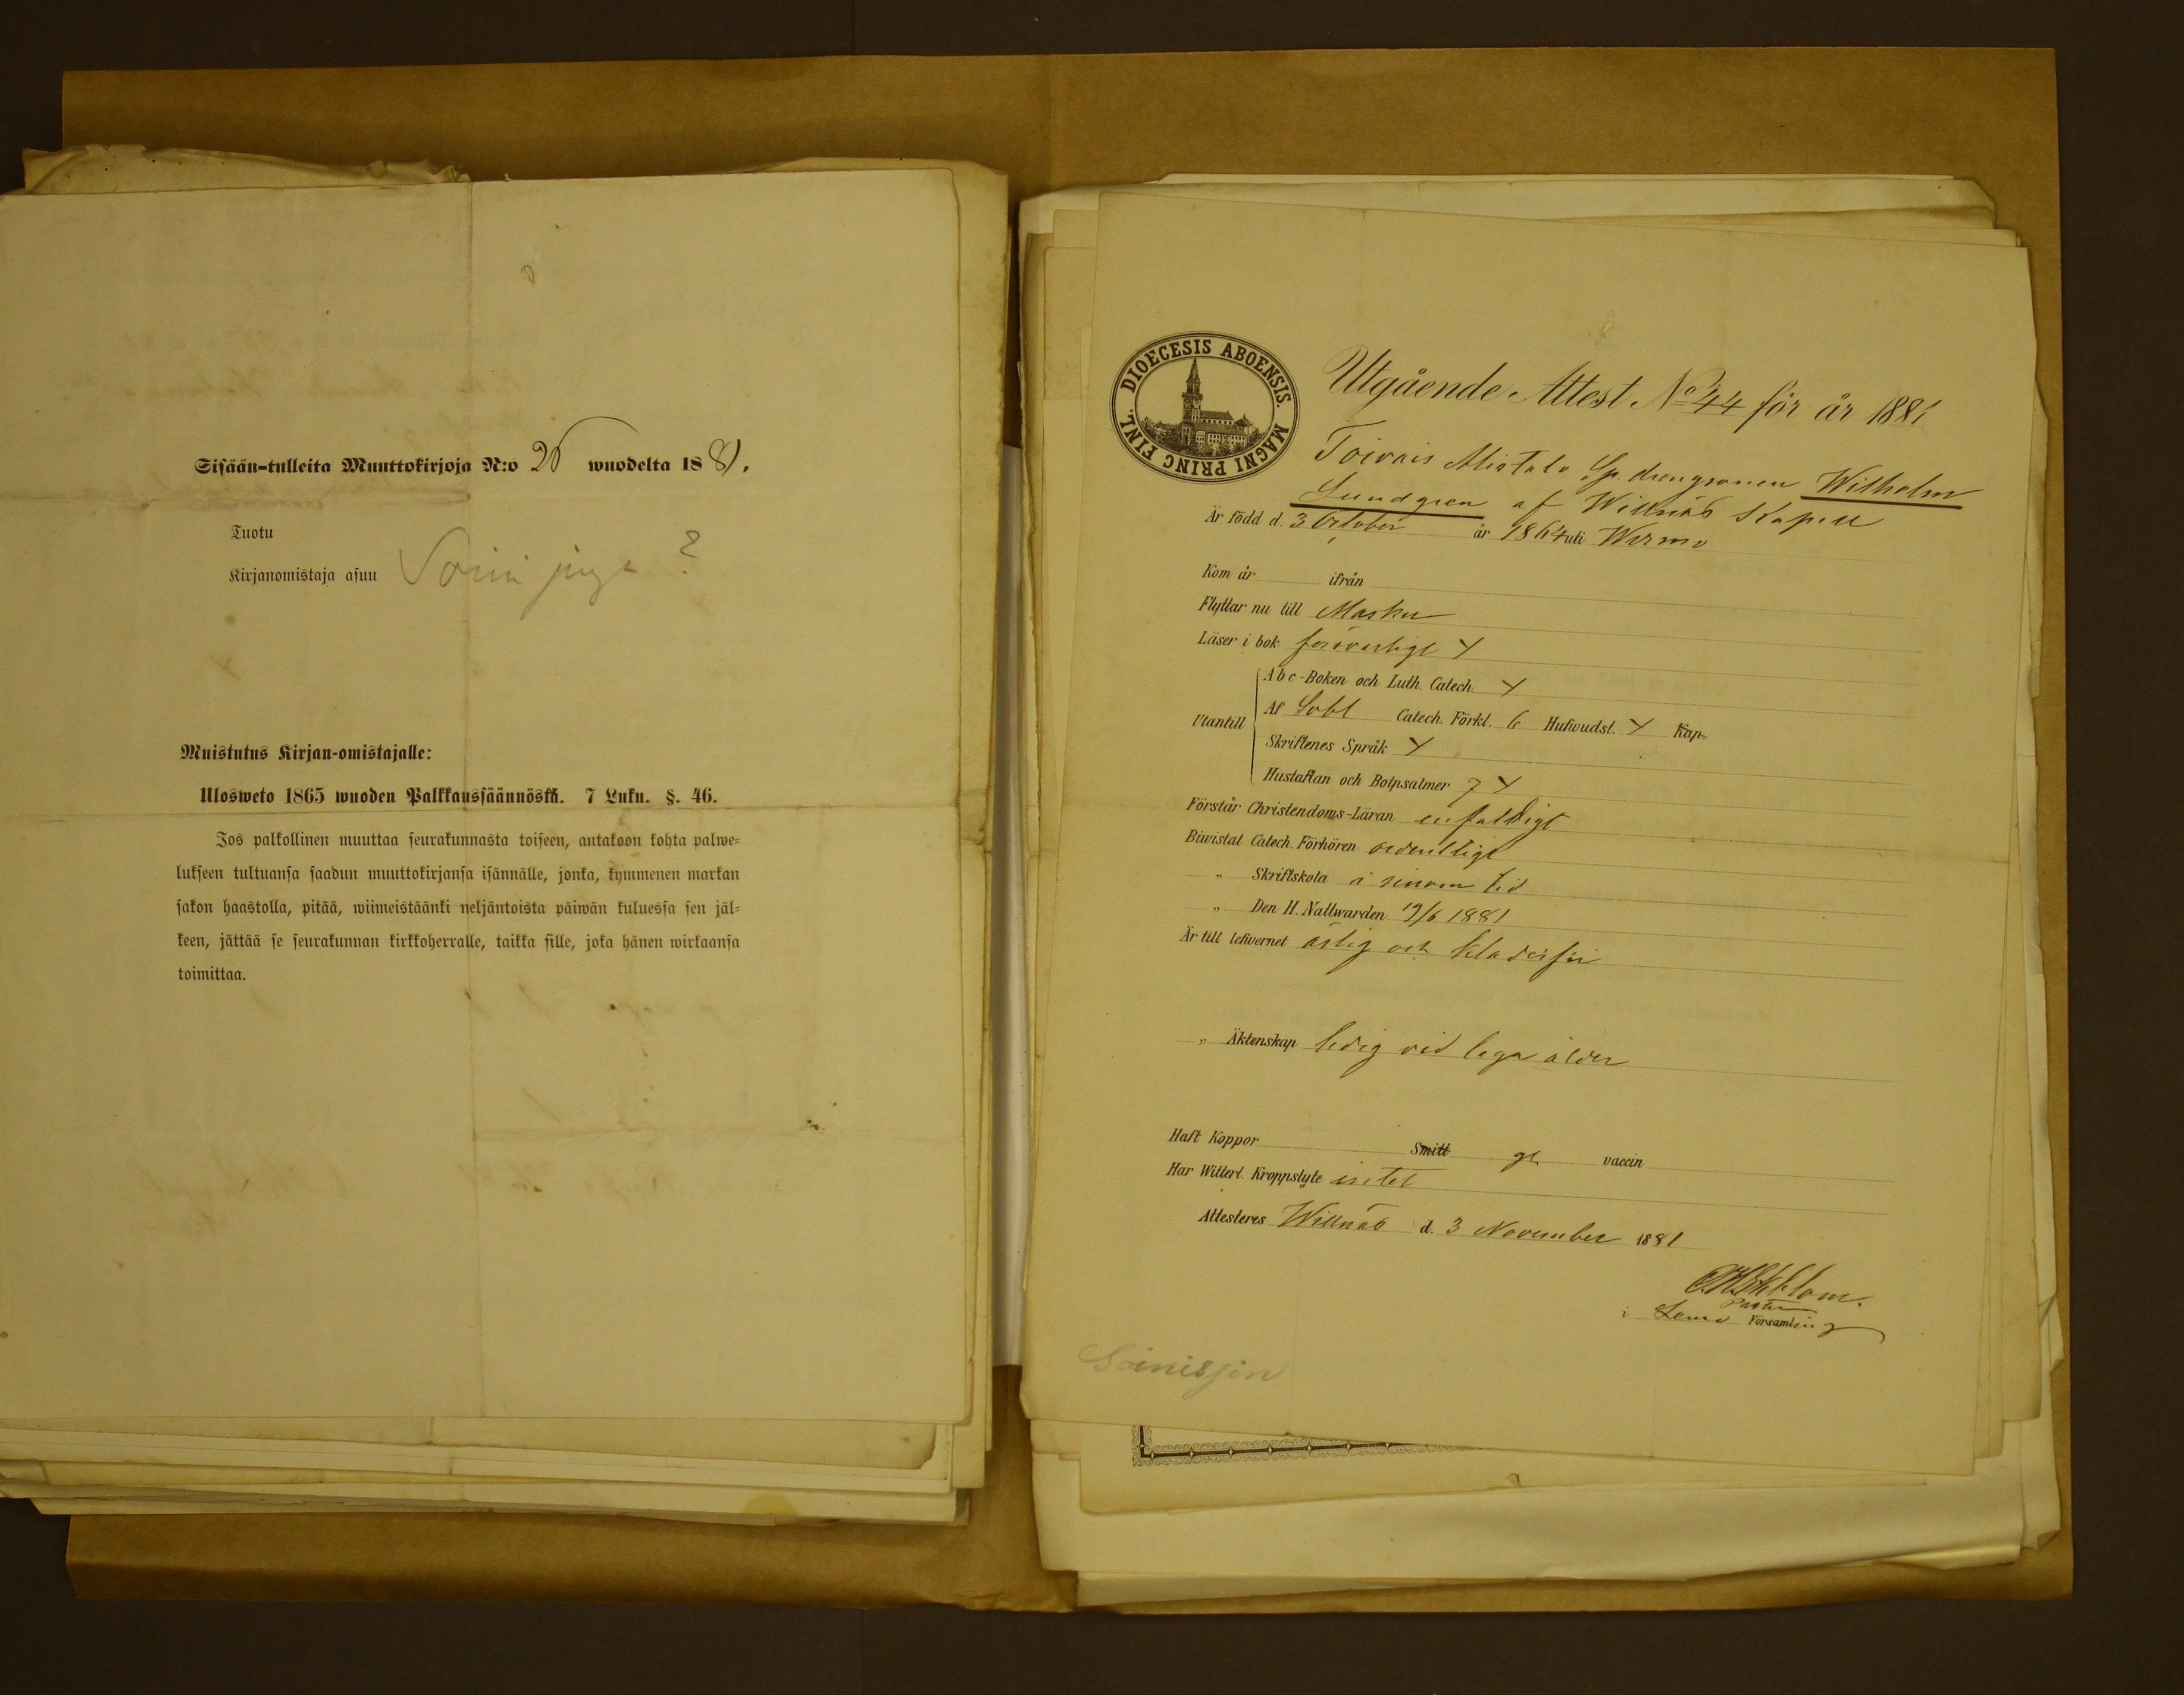 Sisään-tulleita Muuttokirjoja N:o 26 wuodelta 1881.
Tuotu
Kirjanomistaja asuu
Muistutus Kirjan-omistajalle:
Ulosweto 1865 wuoden Palkkaussäännöstä. 7 Luku. §. 46.
Jos palkollinen muuttaa seurakunnasta toiseen, antakoon kohta palwe-
lukseen tultuansa saadun muuttokirjansa isännälle, jonka, kymmenen markan
sakon haastolla, pitää, wiimeistäänki neljäntoista päiwän kuluessa sen jäl-
keen, jättää se seurakunnan kirkkoherralle, taikka sille, joka hänen wirkaansa
toimittaa.
DIOECESIS ABOENSIS. MAGNI PRING FINL.
Utgående Attest No 44 för år 1881
Toivais Alistalo Sp. drengsonen Wilhelm
Lundgren af Willnäs Kapell
Är född d. 3 October år 1864 uti Wirmo
Kom år ifrån
Flyttar nu till Masku
Läser i bok försvarligt X
Utantill
Abc-Boken och Luth. Catech. X
Af Sebl Catech. Förkl. 6 Hufwudst. X Kap.
Skriftenes Språk X
Hustaflan och Botpsalmer 7 X
Förstår Christendoms-Läran enfaldigt
Biwistat Catech. Förhören ordentligt
" Skriftskola i sinom tid
" Den H. Nattwarden 19/6 1881
Är till lefwernet ärlig och
" Äktenskap ledig vid laga ålder
Haft Koppor Smitt vaccin
Har Witterl. Kroppslyte intet
Attesteres Willnäs d. 3 November 1881
Pastor
i Lemo Församling
Soinisjon